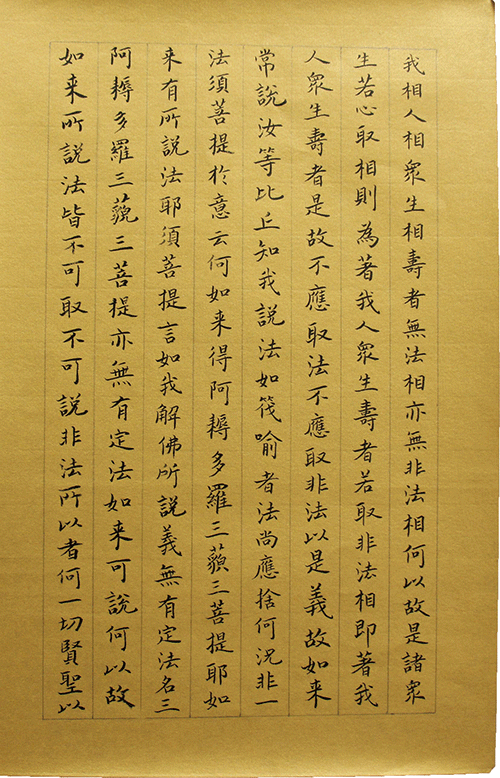 我相人相衆生相壽者無法相亦無非法相何以故是諸衆
生若心取相則為著我人衆生壽者若取非法相即著我
人衆生壽者是故不應取法不應取非法以是義故如来
常說汝等比丘知我說法如筏喻者法尚應捨何況非一
法須菩提於意云何如来得阿耨多羅三藐三菩提耶如
来有所說法耶須菩提言如我解佛所說義無有定法名三
阿耨多羅三藐三菩提亦無有定法如来可說何以故
如来所說法皆不可取不可說非法所以者何一切賢聖以